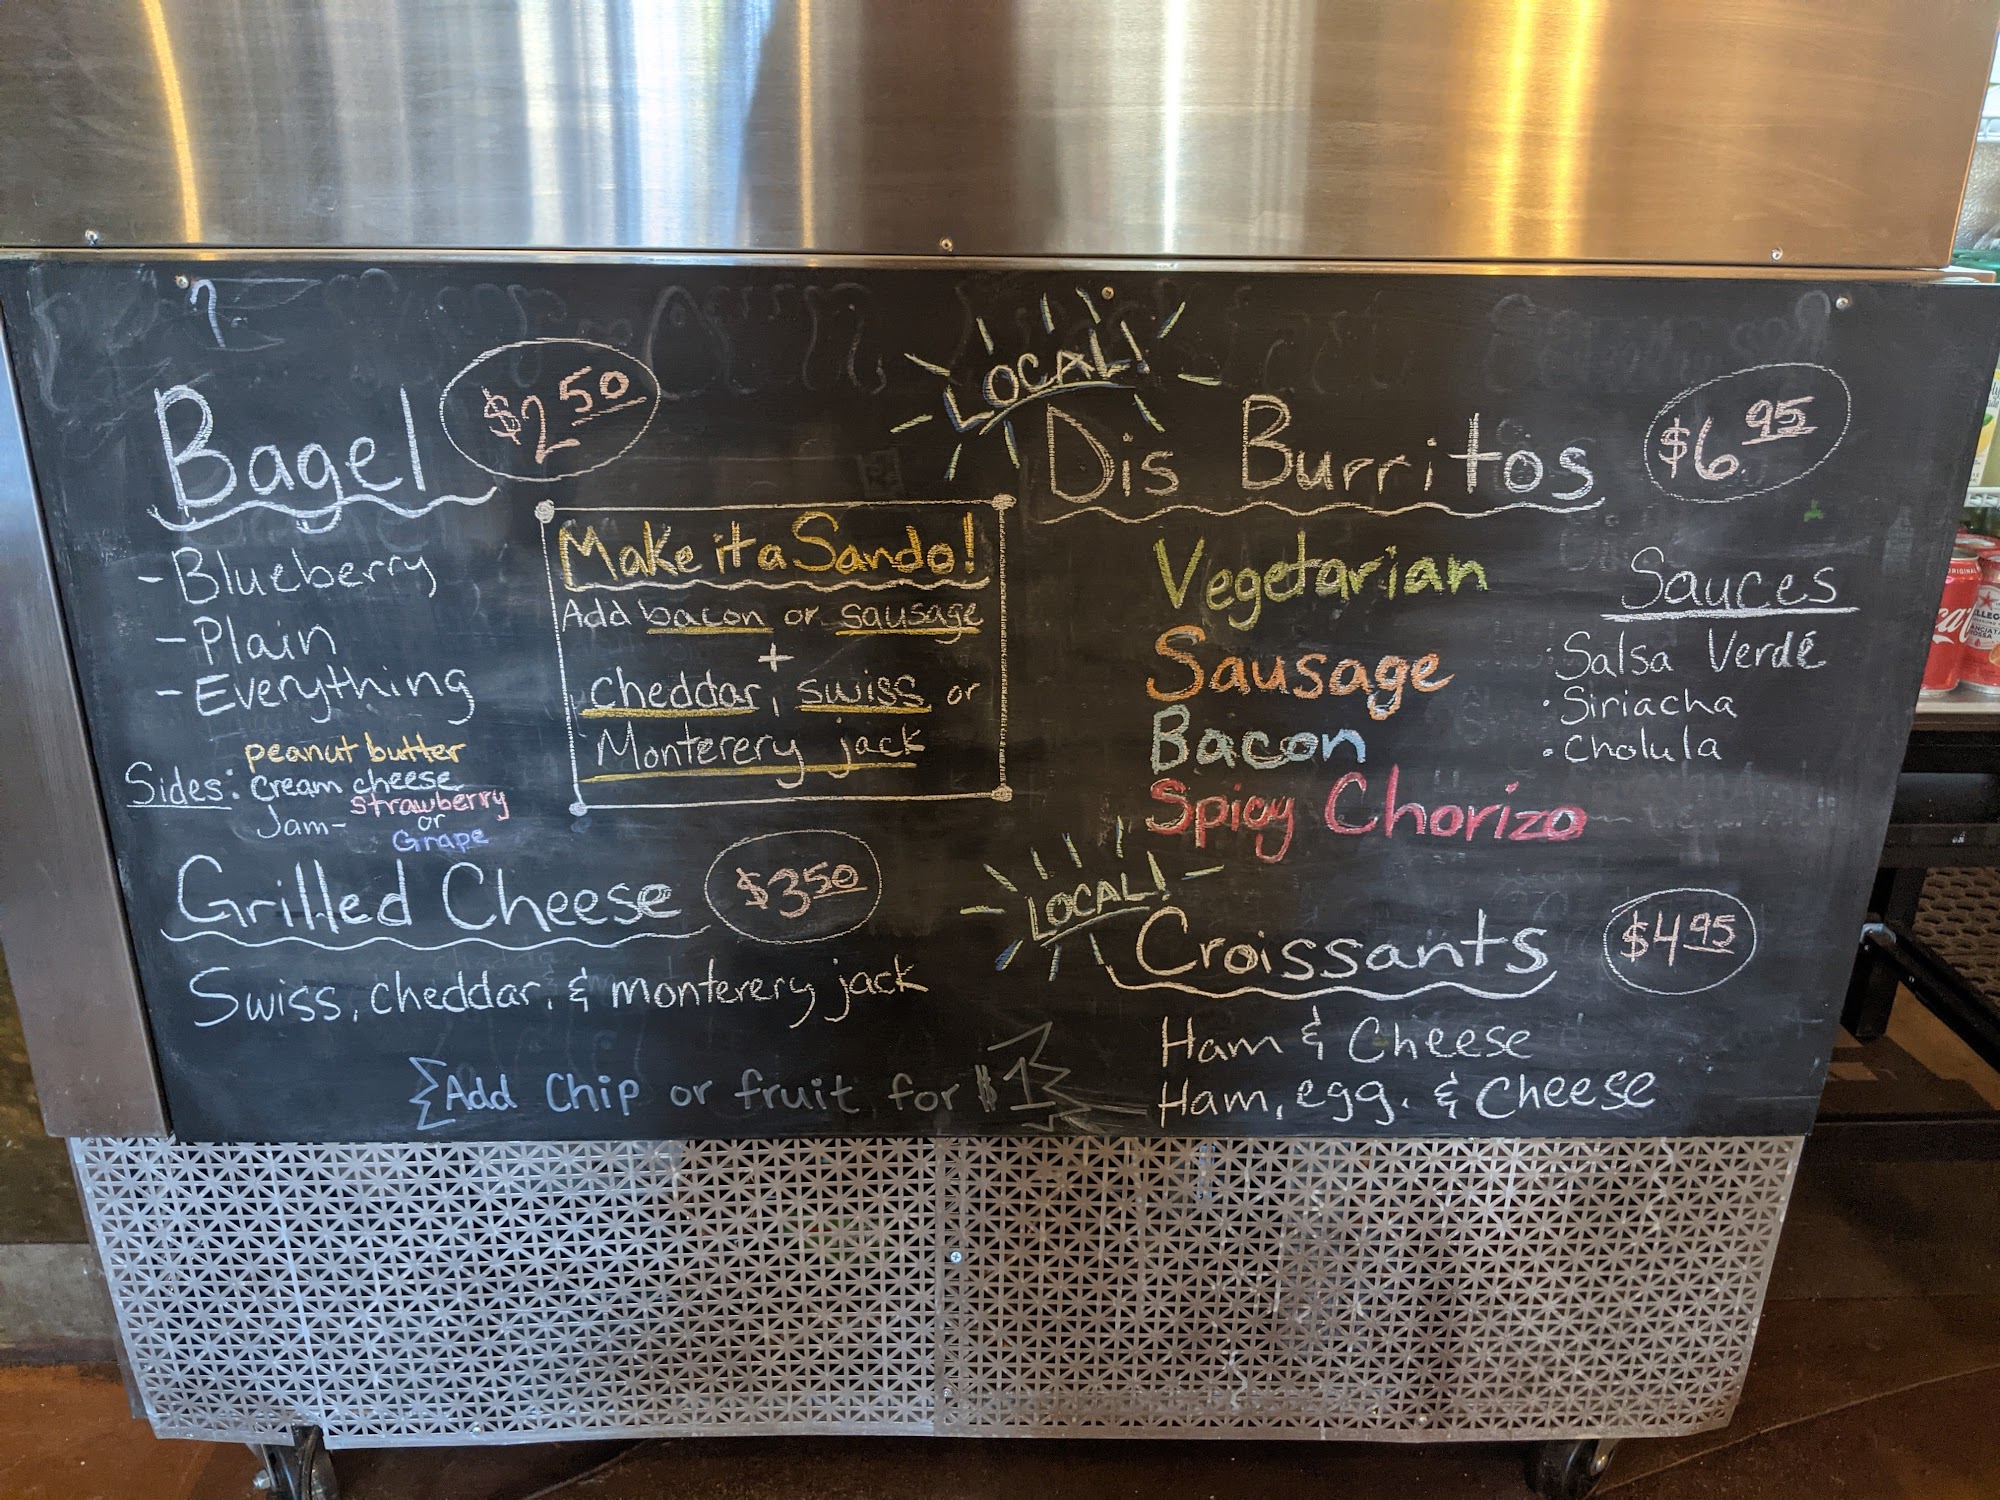 Bagel $2.50
- Blueberry
- Plain
- Everything
Sides: peanut butter
cream cheese
Jam- strawberry
or
Grape
Make it a Sando!
Add bacon or sausage
+
Cheddar, swiss or
Monterery jack
Grilled Cheese $3.50
Swiss, cheddar, & monterery jack
Add chip or fruit for $1
LOCAL!
Dis Burritos $6.95
Vegetarian
Sausage
Bacon
Spicy Chorizo
Sauces
· Salsa Verdé
· Siriacha
· Cholula
LOCAL!
Croissants $4.95
Ham & Cheese
Ham, egg, & Cheese